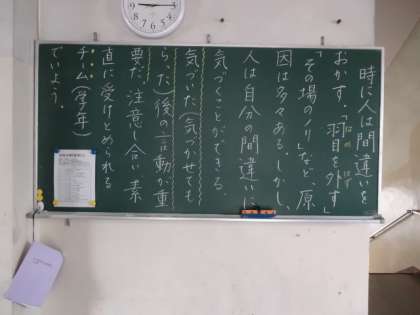 時に人は間違いを
おかす。「羽目を外す」
はめ はず
「その場のノリ」など、原
因は多々ある。しかし、
人は自分の間違いに
気づくことができる。
気づいた(気づかせても
らった)後の言動が重
要だ。注意し合い、素
直に受けとめられる
チーム(学年)
でいよう。
12
3
6
9